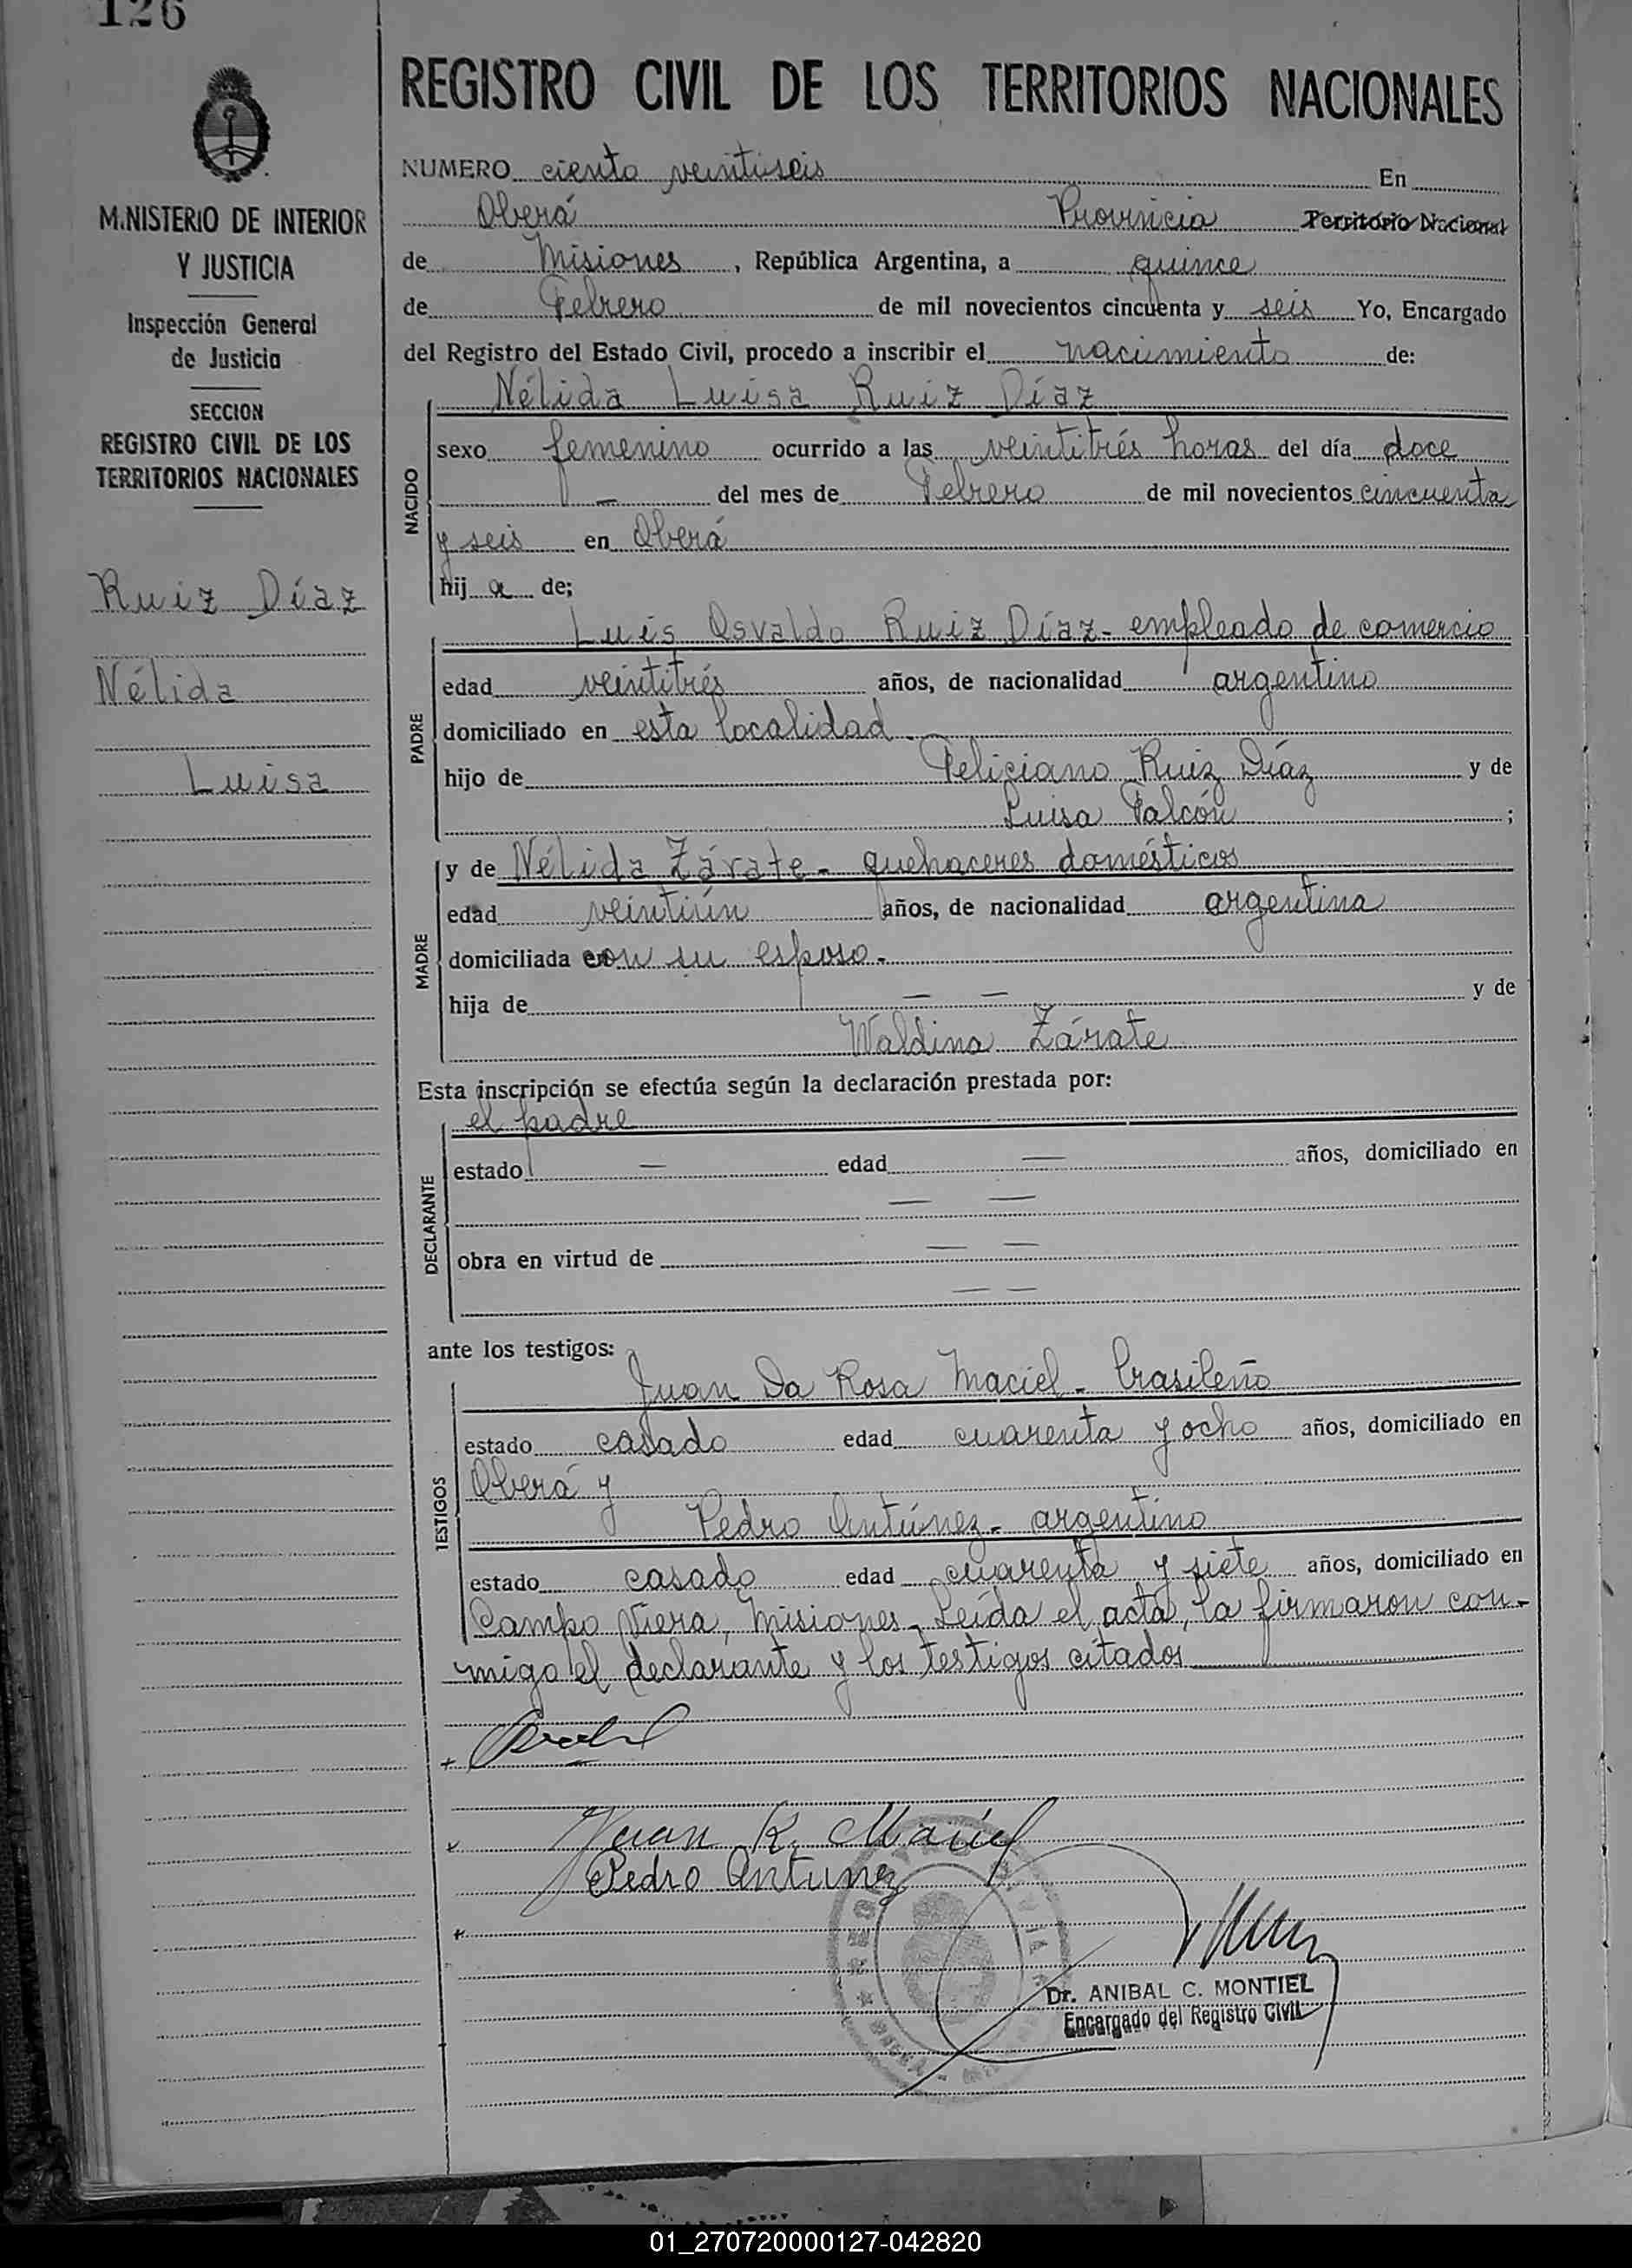 126
REGISTRO CIVIL DE LOS TERRITORIOS NACIONALES
MINISTERIO DE INTERIOR
Y JUSTICIA
Inspección General
de Justicia
SECCION
REGISTRO CIVIL DE LOS
TERRITORIOS NACIONALES
Ruiz Díaz
Nélida
Luisa
NUMERO ciento veintiseis En
Oberá Provincia Territorio Nacional
de Misiones, República Argentina, a quince
de Febrero de mil novecientos cincuenta y seis Yo, Encargado
del Registro del Estado Civil, procedo a inscribir el nacimiento de:
NACIDO
Nélida Luisa Ruiz Díaz
sexo femenino ocurrido a las veintitrés horas del día doce
— del mes de Febrero de mil novecientos cincuenta
y seis en Oberá
hij a de;
PADRE
Luis Osvaldo Ruiz Díaz - empleado de comercio
edad veintitrés años, de nacionalidad argentino
domiciliado en esta localidad.
hijo de Feliciano Ruiz Díaz y de
Luisa Falcón ;
MADRE
y de Nélida Zárate - quehaceres domésticos
edad veintiún años, de nacionalidad argentina
domiciliada con su esposo.-
hija de — — y de
Waldina Zárate
Esta inscripción se efectúa según la declaración prestada por:
DECLARANTE
el padre
estado — edad — años, domiciliado en
— —
obra en virtud de — —
— —
ante los testigos:
TESTIGOS
Juan Da Rosa Maciel - brasileño
estado casado edad cuarenta y ocho años, domiciliado en
Oberá y
Pedro Antúnez - argentino
estado casado edad cuarenta y siete años, domiciliado en
Campo Viera, Misiones - Leída el acta, la firmaron con-
migo el declarante y los testigos citados
Juan R. Maciel
Pedro Antunez
Dr. ANIBAL C. MONTIEL
Encargado del Registro Civil
01_270720000127-042820